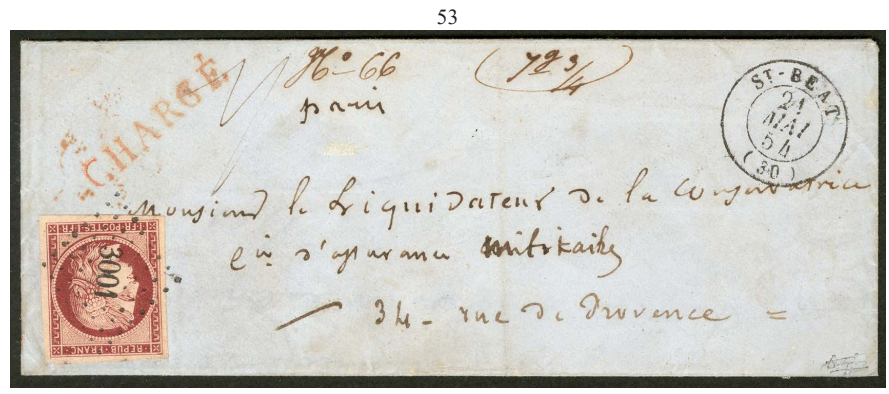 53
CHARGÉ
No 66
7g 3/4
ST-BEAT
21
MAI
54
(30)
Monsieur le Liquidateur de la Conservatrice
Cie d'assurance militaire
34 - rue de Provence =
3004
1 FR. POSTES 1 FR.
REPUB. FRANC.